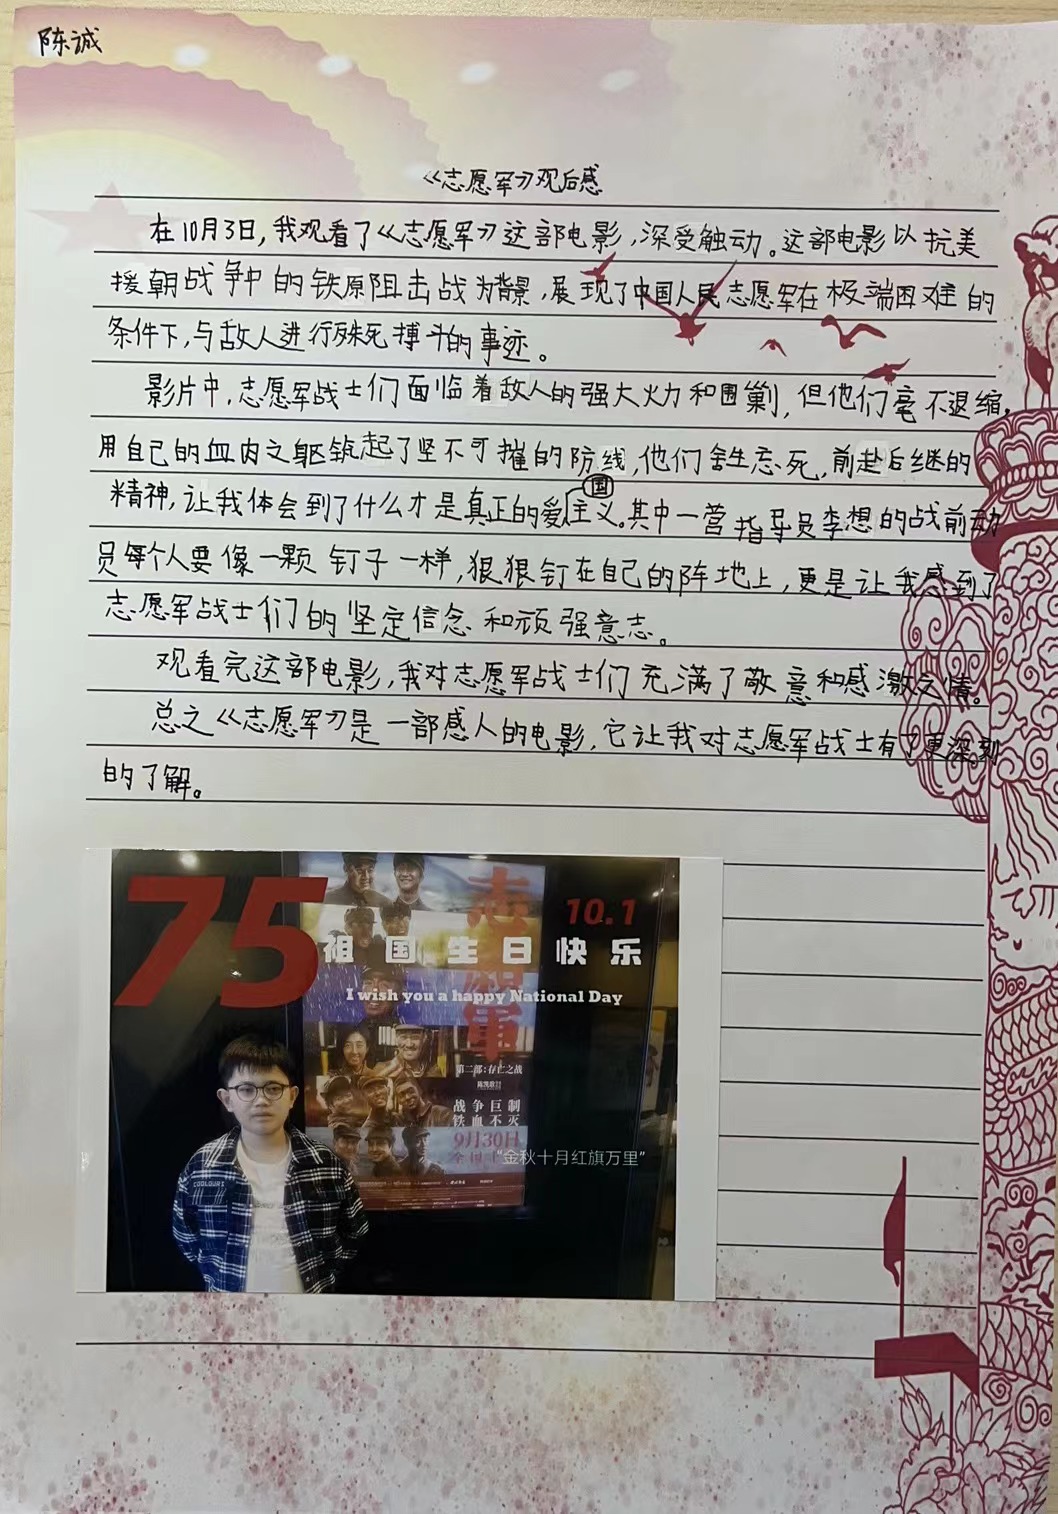 陈诚
《志愿军》观后感
在10月3日,我观看了《志愿军》这部电影,深受触动。这部电影以抗美
援朝战争中的铁原阻击战为背景,展现了中国人民志愿军在极端困难的
条件下,与敌人进行殊死搏斗的事迹。
影片中,志愿军战士们面临着敌人的强大火力和围剿,但他们毫不退缩,
用自己的血肉之躯筑起了坚不可摧的防线,他们舍生忘死,前赴后继的
精神,让我体会到了什么才是真正的爱国主义。其中一营指导员李想的战前动
员每个人要像一颗钉子一样,狠狠钉在自己的阵地上,更是让我感到了
志愿军战士们的坚定信念和顽强意志。
观看完这部电影,我对志愿军战士们充满了敬意和感激之情。
总之《志愿军》是一部感人的电影,它让我对志愿军战士有了更深刻
的了解。
75
志愿軍
10.1
祖国生日快乐
I wish you a happy National Day
第二部:存亡之战
陈凯歌
战争巨制
铁血不灭
9月30日
"金秋十月红旗万里"
COOLOURS